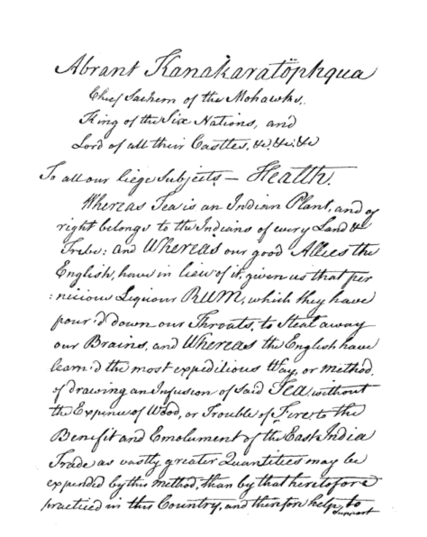 Abrant Kanakaratöphqua
Chief Sachem of the Mohawks,
King of the Six Nations, and
Lord of all their Castles, &c. &c. &c
To all our liege Subjects — Health.
Whereas Tea is an Indian Plant, and of
right belongs to the Indians of every Land &
Tribe: and Whereas our good Allies the
English, have in lieu of it, given us that per
:nicious Liquour RUM, which they have
pour'd down our Throats, to Steal away
our Brains, and Whereas the English have
learn'd the most expeditious Way, or method,
of drawing an Infusion of said Tea, without
the Expence of Wood, or Trouble of Fire, to the
Benefit and Emolument of the East India
Trade, as vastly greater Quantities may be
expended by this method, than by that heretofore
practiced in this Country, and therefore help, to
support